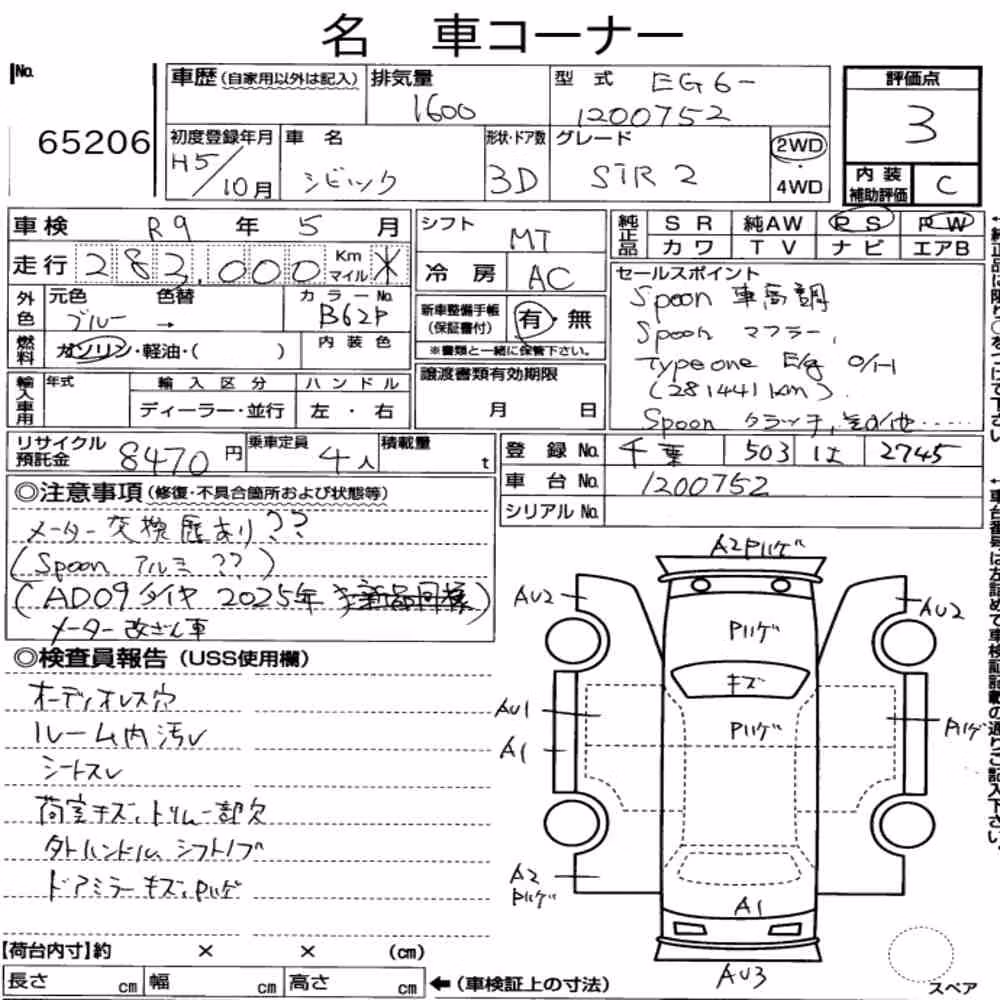 名 車コーナー
No. 65206
車歴 (自家用以外は記入)
排気量 1600
型式 EG6-1200752
評価点 3
初度登録年月 H5/10月
車名 シビック
形状・ドア数 3D
グレード SIR 2
2WD・4WD
内装補助評価 C
車検 R9年 5月
シフト MT
純正品 SR 純AW PS PW
カワ TV ナビ エアB
走行 282,000 Km マイル *
冷房 AC
セールスポイント
Spoon 車高調
Spoon マフラー,
Type one E/g O/H
(281441km)
Spoon クラッチ, その他……
外色 元色 ブルー 色替 → カラーNo. B62P
新車整備手帳(保証書付) 有・無
※書類と一緒に保管下さい。
燃料 ガソリン・軽油・( ) 内装色
輸入車用 年式 輸入区分 ハンドル
ディーラー・並行 左・右
譲渡書類有効期限
月 日
リサイクル預託金 8470円
乗車定員 4人
積載量 t
登録No. 千葉 503 は 2745
車台No. 1200752
シリアルNo.
◎注意事項 (修復・不具合箇所および状態等)
メーター交換歴あり??
(Spoon アルミ??)
(AD09タイヤ 2025年 新品同様)
メーター改ざん車
◎検査員報告 (USS使用欄)
オーディオレス穴
ルーム内汚レ
シートスレ
荷室キズ、トリム一部欠
タトハンドル シフトノブ
ドアミラーキズ、Pハゲ
A2Pハゲ
AU2
AU2
Pハゲ
キズ
AU1
Pハゲ
Pハゲ
A1
A2
Pハゲ
A1
AU3
スペア
【荷台内寸】約 × × (cm)
長さ cm 幅 cm 高さ cm
←(車検証上の寸法)